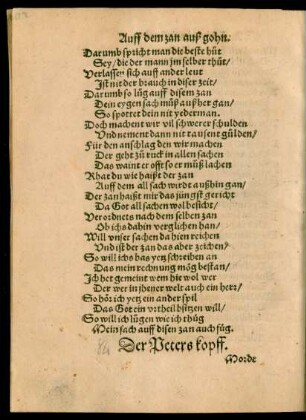 Auff dem zan auß gohn.
Darumb spricht man die beste hüt
Sey/ die der mann jm selber thüt/
Verlassen sich auff ander leut
Ist nit der brauch in diser zeit/
Darumb so lüg auff disem zan
Dein eygen sach müß außher gan/
So spottet dein nit yederman.
Doch machent wir vil schwerer schulden
Vnd nement dann nit tausent gülden/
Für den anschlag den wir machen
Der geht zů ruck in allen sachen
Das waint er offt so er müß lachen
Rhat du wie haißt der zan
Auff dem all sach wirdt außhin gan/
Der zan haißt mir das jüngst gericht
Da Got all sachen wol besicht/
Verordnets nach dem selben zan
Ob ichs dahin verglichen han/
Will vnser sachen dahien reichen
Vnd ist der zan das aber zeichen/
So will ichs has yetz schreiben an
Das mein rechnung mög bestan/
Ich het gemeint wen hie wol wer
Der wer in jhener welt auch ein herr/
So hör ich yetz ein ander spil
Das Got ein vrtheil bsitzen will/
So will ich lůgen wie ich thüg
Mein sach auff disen zan auch füg.
Der Peters kopff.
Morde